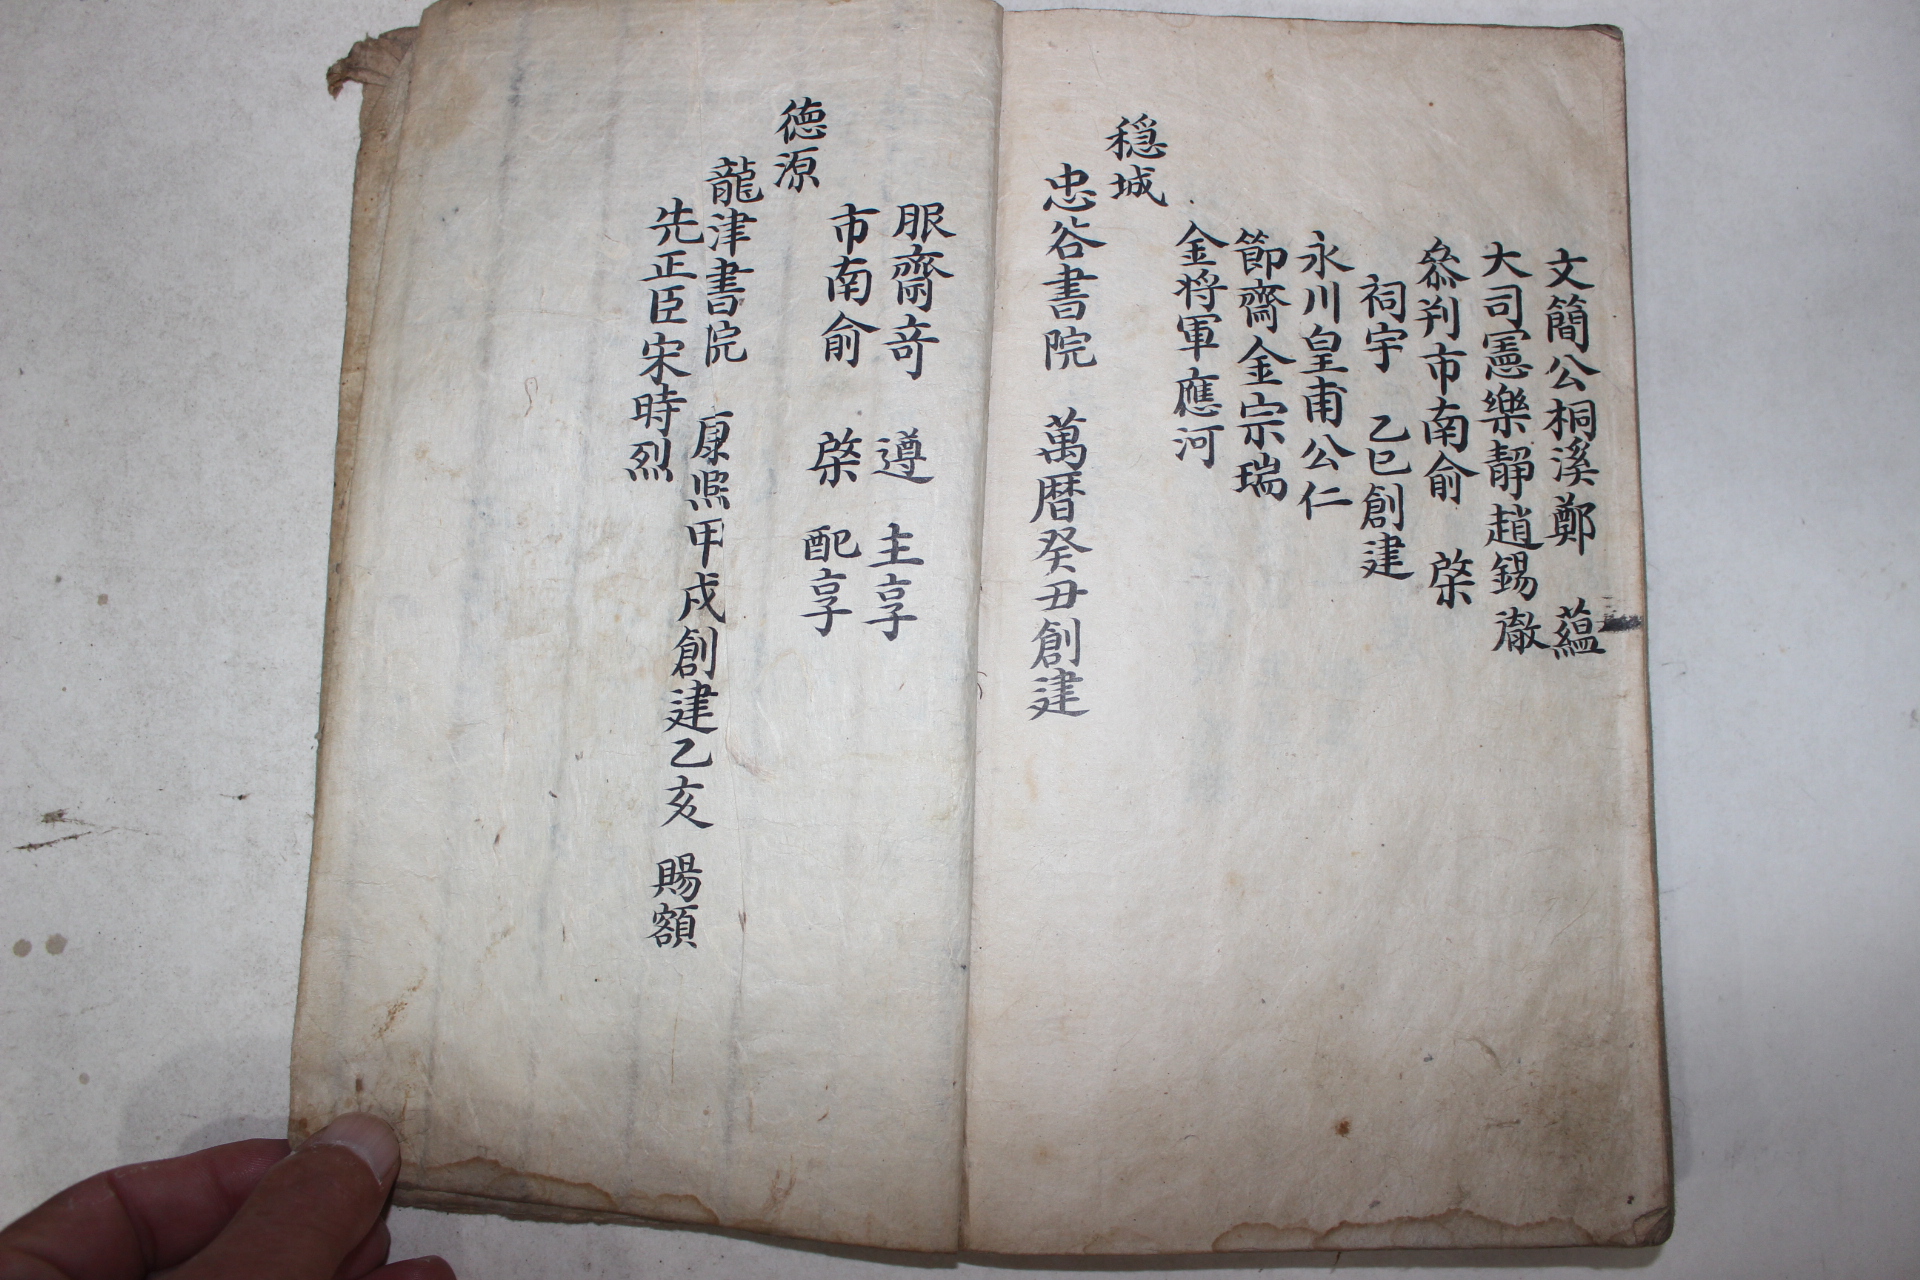 文簡公桐溪鄭 蘊
大司憲樂靜趙錫 澈
叅判市南俞 棨
祠宇 乙巳創建
永川皇甫公仁
節齋金宗瑞
金将軍應河
穏城
忠谷書院 萬暦癸丑創建
服齋奇 遵 主享
市南俞 棨 配享
德源
龍津書院 康熙甲戌創建乙亥 賜額
先正臣宋時烈